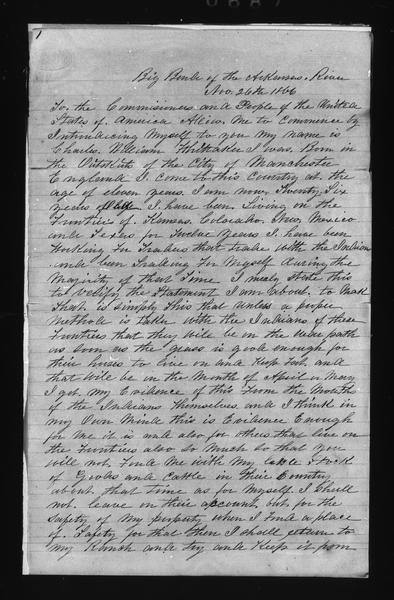 Big Bend of the Arkansas River
Nov. 26th 1866
To the Commisioners and People of the United
States of America Allow Me to Commence by
Introducing Myself to you My name is
Charles William Whittaker I was Born in
the Outskirts of the City of Manchester
England I come to this Country at the
age of eleven years. I am now Twenty Six
years I have been Living on the
Frontier of Kansas. Colorado. New Mexico
and Texas for Twelve years I have been
Working For Traders that trade with the Indians
and been Trading For Myself during the
Majority of that Time I merly state this
to verify the Statement I am about to Make
That is simply This that unless a proper
Method is taken with the Indians of these
Frontiers that they will be in the War path
as soon as the grass is good enough for
their horses to live on and keep fat and
that will be in the Month of April or May
I got my Evidence of this From the Mouths
of the Indians Themselves and I think in
my Own Mind this is Evidence Enough
for Me it is and also for others that live on
the Frontiers also So Much So that you
will not Find Me with My little Stock
of Goods and Cattle in Their Country
about that time as for Myself I Shall
not leave on their account but for the
Safety of My property when I Find a place
of Safety for that then I shall return to
my Ranch and try and Keep it from